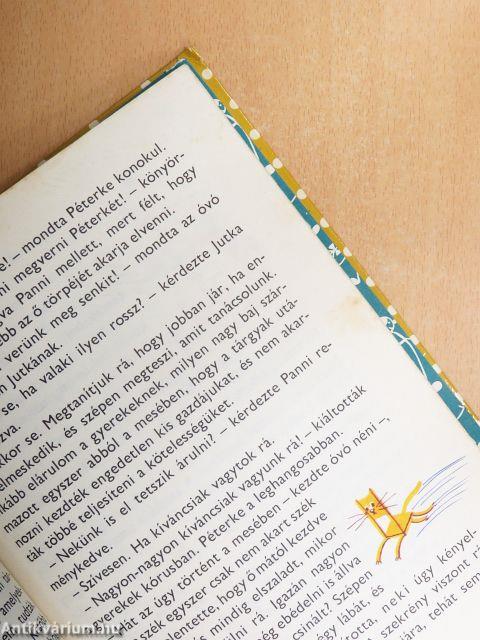 e! – mondta Péterke konokul.
ni megverni Péterkét! – könyör-
va Panni mellett, mert félt, hogy
ebb az ő törpéjét akarja elvenni.
verünk meg senkit! – mondta az óvó
n Jutkának.
se, ha valaki ilyen rossz? – kérdezte Jutka
zva.
kor se. Megtanítjuk rá, hogy jobban jár, ha en-
elmeskedik, és szépen megteszi, amit tanácsolunk.
kább elárulom a gyerekeknek, milyen nagy baj szár-
mazott egyszer abból a mesében, hogy a tárgyak utá-
nozni kezdték engedetlen kis gazdájukat, és nem akar-
ták többé teljesíteni a kötelességüket.
– Nekünk is el tetszik árulni? – kérdezte Panni re-
ménykedve.
– Szívesen. Ha kíváncsiak vagytok rá.
– Nagyon-nagyon kíváncsiak vagyunk rá! – kiáltották
erekek kórusban. Péterke a leghangosabban.
hát az úgy történt a mesében – kezdte óvó néni –,
szék egyszer csak nem akart szék
elentette, hogy ő mától kezdve
mindig elszaladt, mikor
ülni rá. Igazán nagyon
ebédelni is állva
csinált? Szépen
lábát, és
neki úgy kényel-
szekrény viszont
tehát sem
Antikvarium.hu